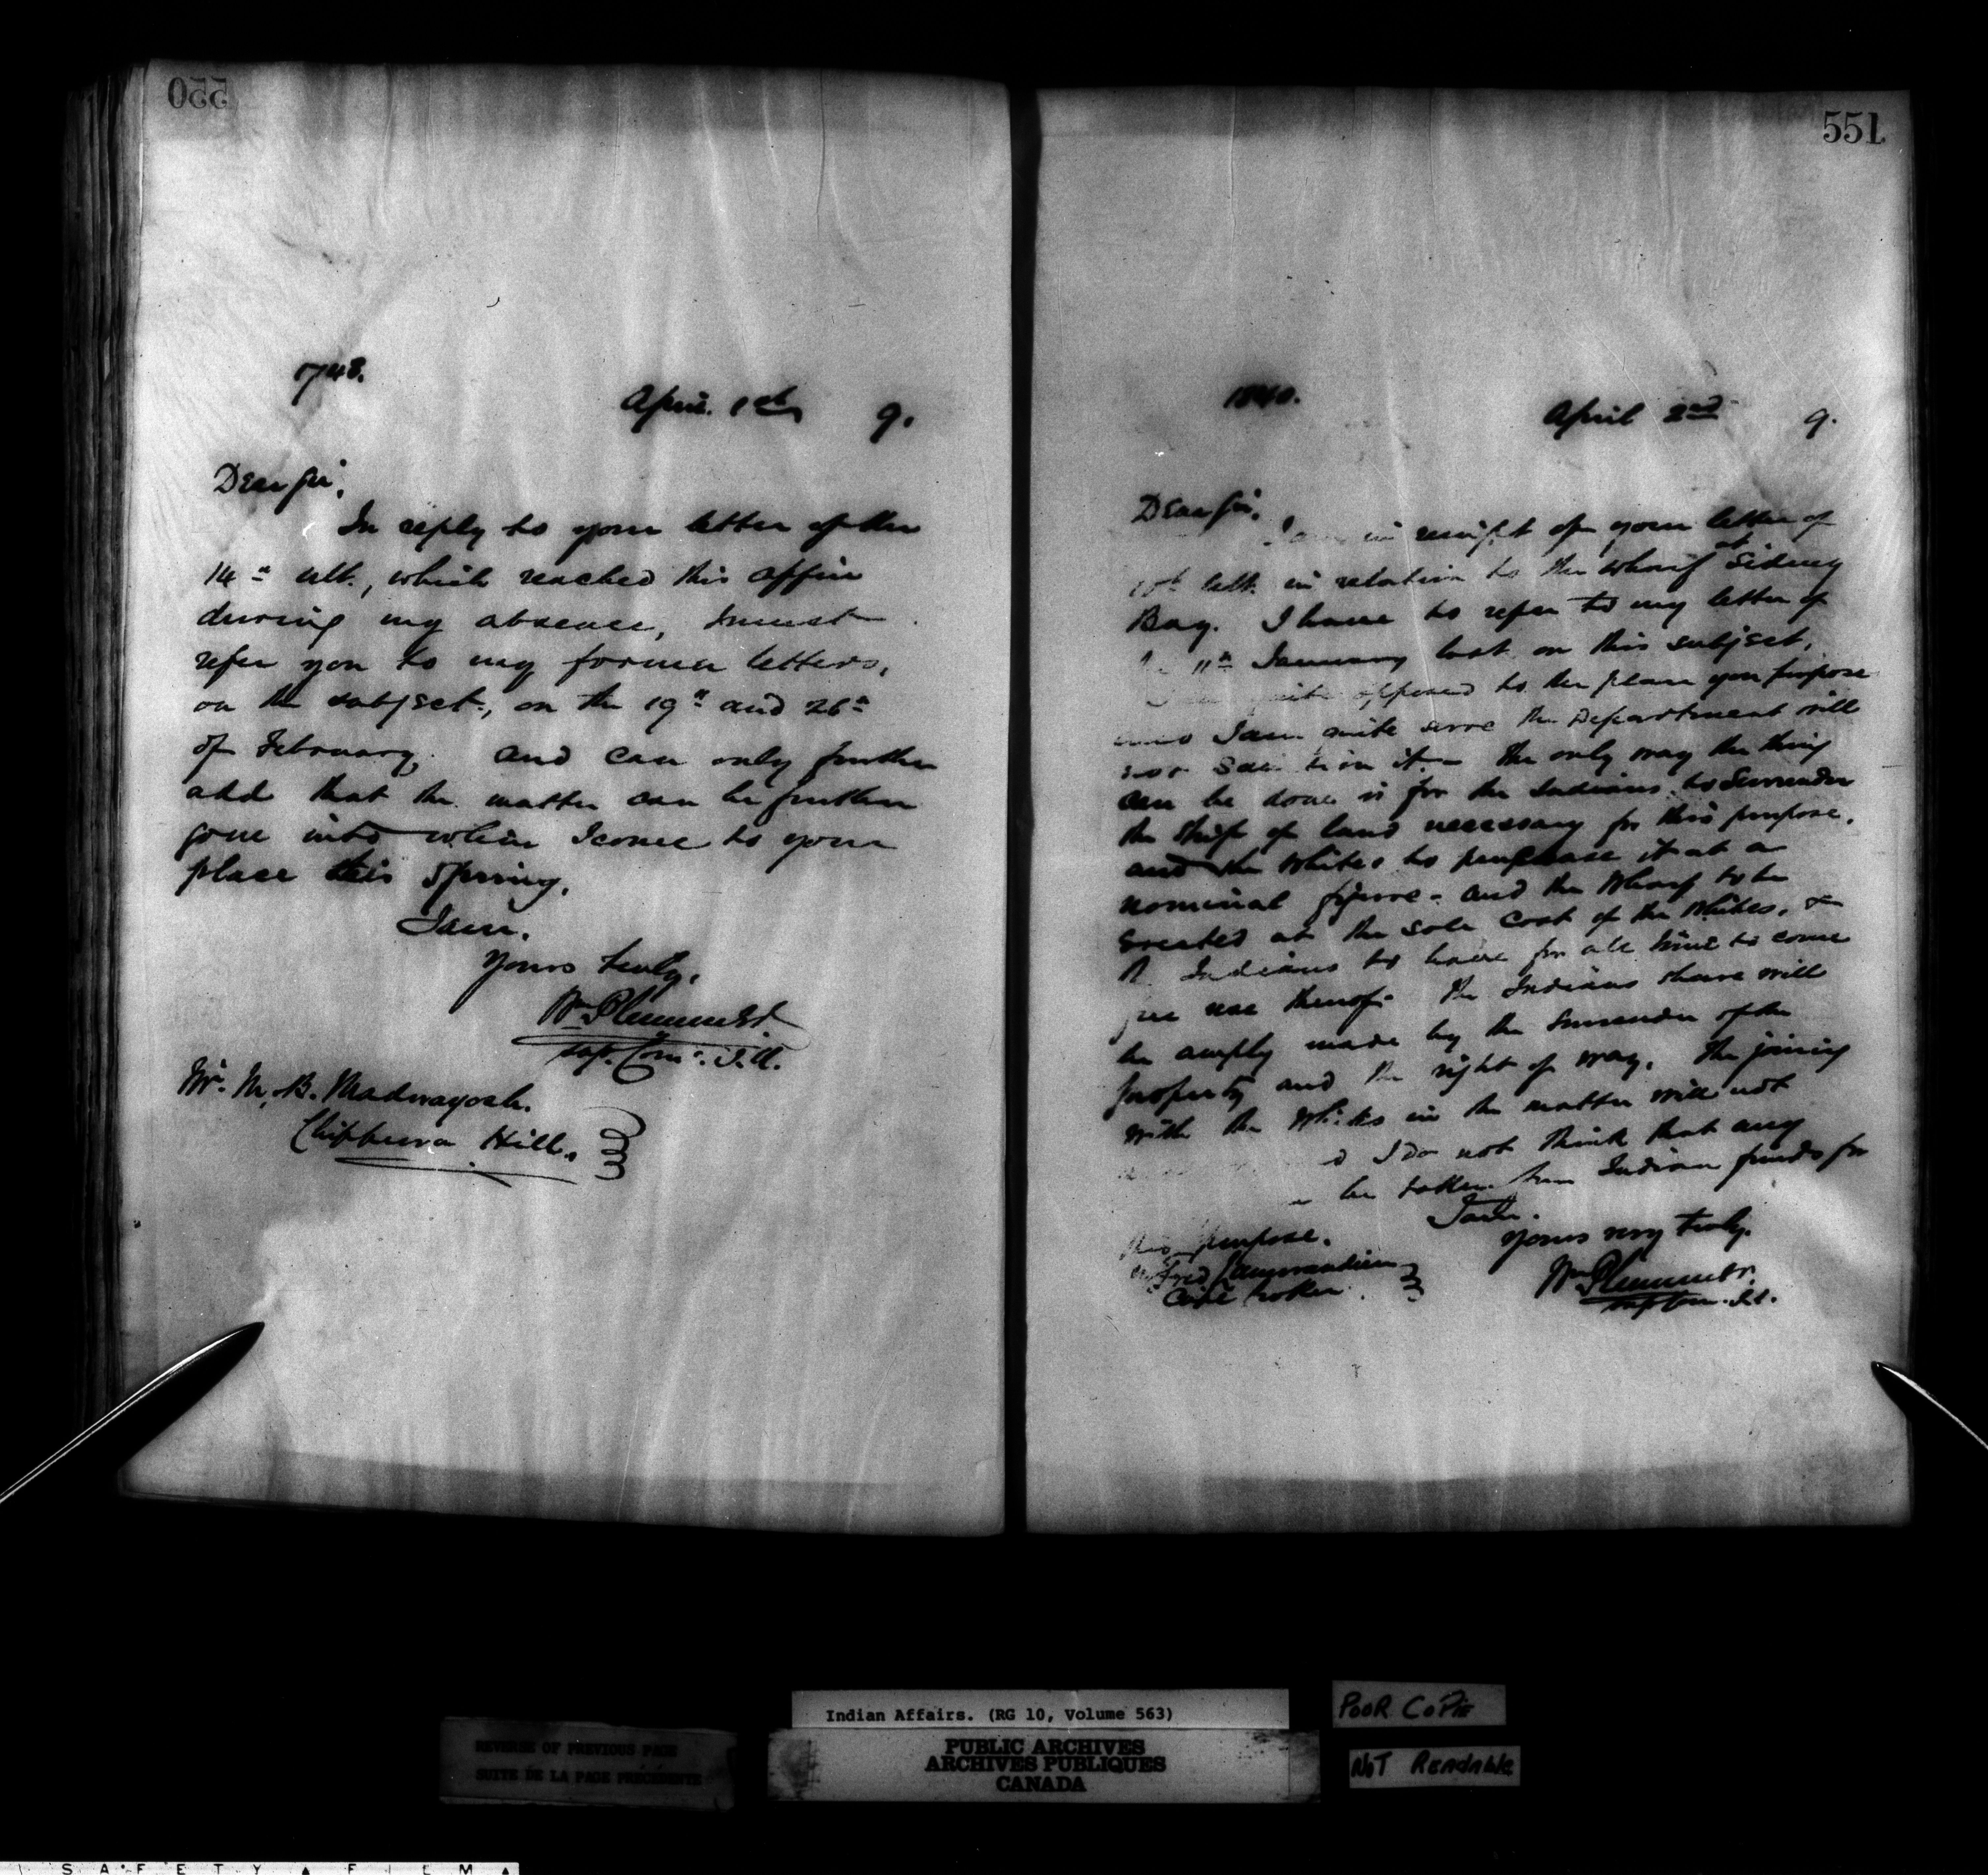 550
1748.
April 1st 9.
Dear Sir,
In reply to your letter of the
14th ult., which reached this office
during my absence, I must
refer you to my former letters,
on the subject, on the 19th and 26th
of February. and can only further
add that the matter can be further
gone into when I come to your
place this Spring.
I am,
Yours truly,
Wm Plummer
Sup. Comr. I.A.
Mr. M. B. Madwayosh.
Chippewa Hill.
551
1840.
April 2nd 9.
Dear Sir,
I am in receipt of your letter of
ult. in relation to the wharf at Sidney
Bay. I have to refer to my letter of
11th January last on this subject.
quite opposed to the plan you propose
I am quite sure the Department will
not sanction it. - The only way the thing
can be done is for the Indians to surrender
the strip of land necessary for this purpose,
and the whites to purchase it at a
nominal figure - and the wharf to be
erected at the sole cost of the whites, &
Indians to have for all time to come
free use thereof. The Indians share will
be amply made by the surrender of the
property and the right of way. The joining
with the whites in the matter will not
I do not think that any
be taken from Indian funds for
this purpose.
I am.
Yours very truly.
Wm Plummer.
Sup Com. I.A.
Cape Croker.
Indian Affairs. (RG 10, Volume 563)
PUBLIC ARCHIVES
ARCHIVES PUBLIQUES
CANADA
REVERSE OF PREVIOUS PAGE
SUITE DE LA PAGE PRÉCÉDENTE
POOR COPIE
NOT READABLE
SAFETY FILM